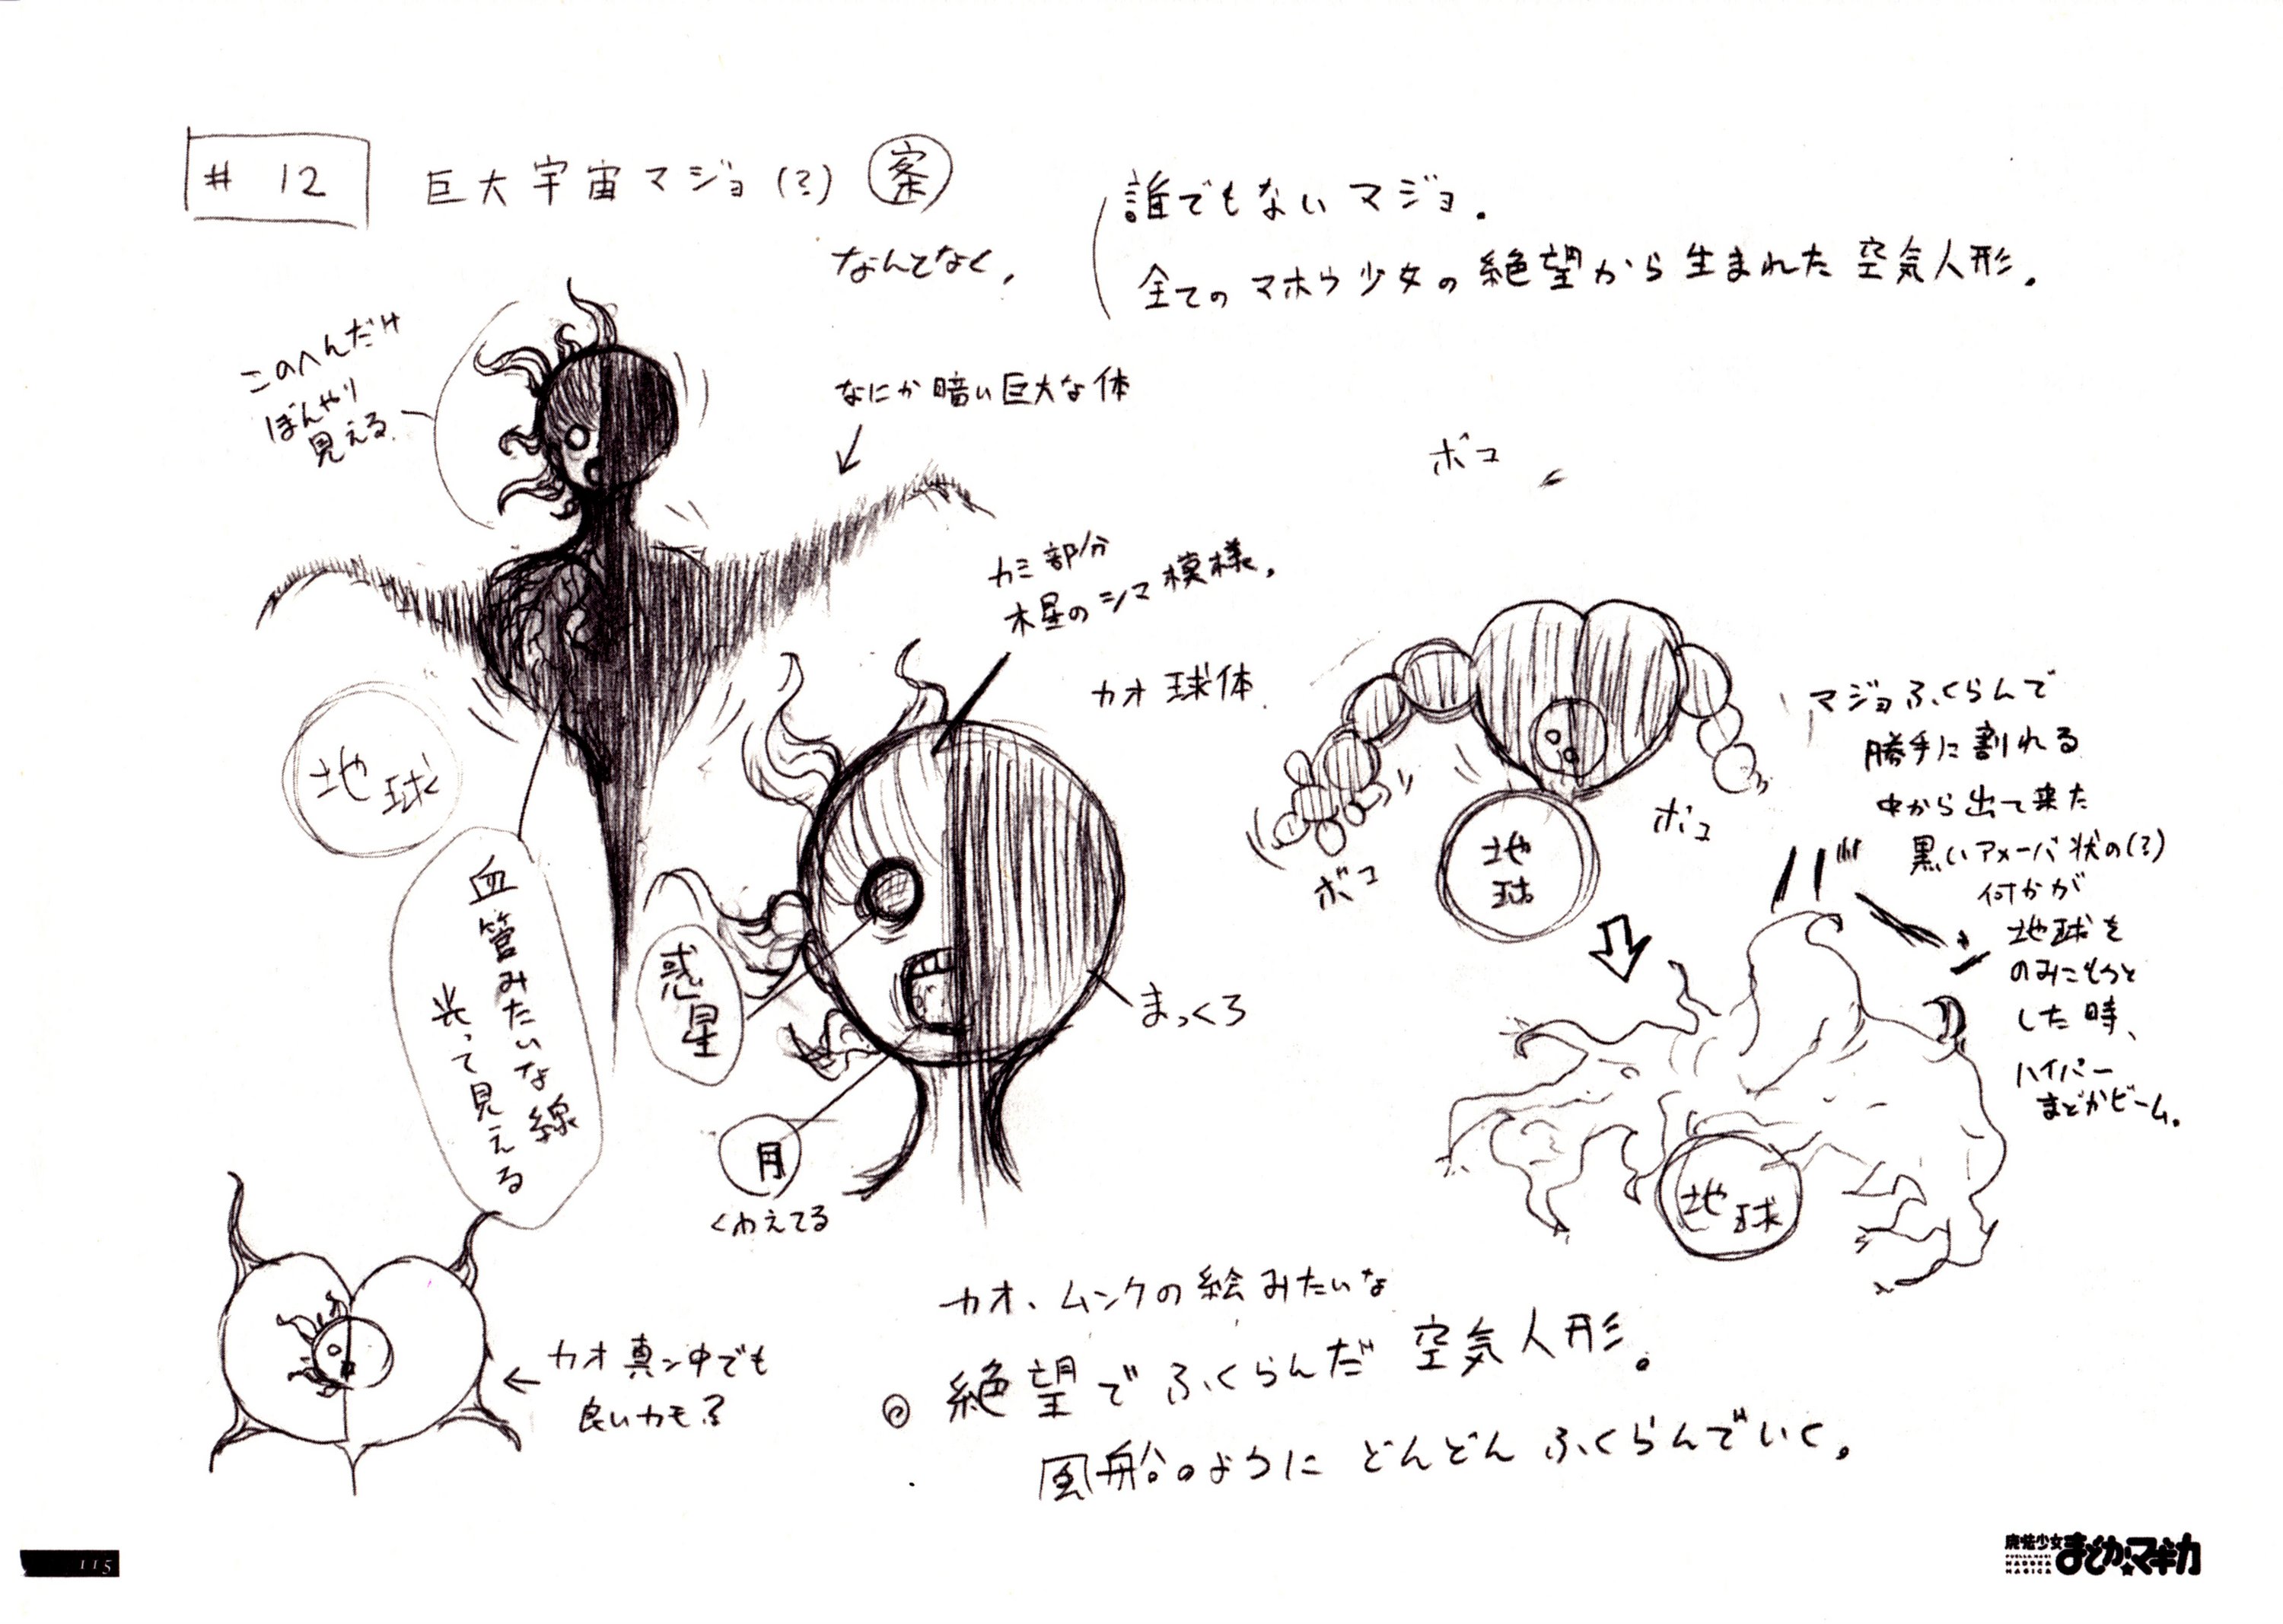 # 12
巨大宇宙マジョ(?) 案
なんとなく.
誰でもないマジョ.
全てのマホウ少女の絶望から生まれた空気人形.
このへんだけ
ぼんやり
見える.
なにか暗い巨大な体
地球
血管みたいな線
光って見える
カミ部分
木星のシマ模様.
カオ球体
惑星
月
くわえてる
まっくろ
ボコ
ボコ
ボコ
地
球
マジョふくらんで
勝手に割れる
中から出て来た
黒いアメーバ状の(?)
何かが
地球を
のみこもうと
した時、
ハイパー
まどかビーム.
地球
カオ真ン中でも
良いカモ?
カオ、ムンクの絵みたいな
◎ 絶望でふくらんだ空気人形.
風船のようにどんどんふくらんでいく.
115
魔法少女
まどか★マギカ
PUELLA MAGI
MADOKA
MAGICA